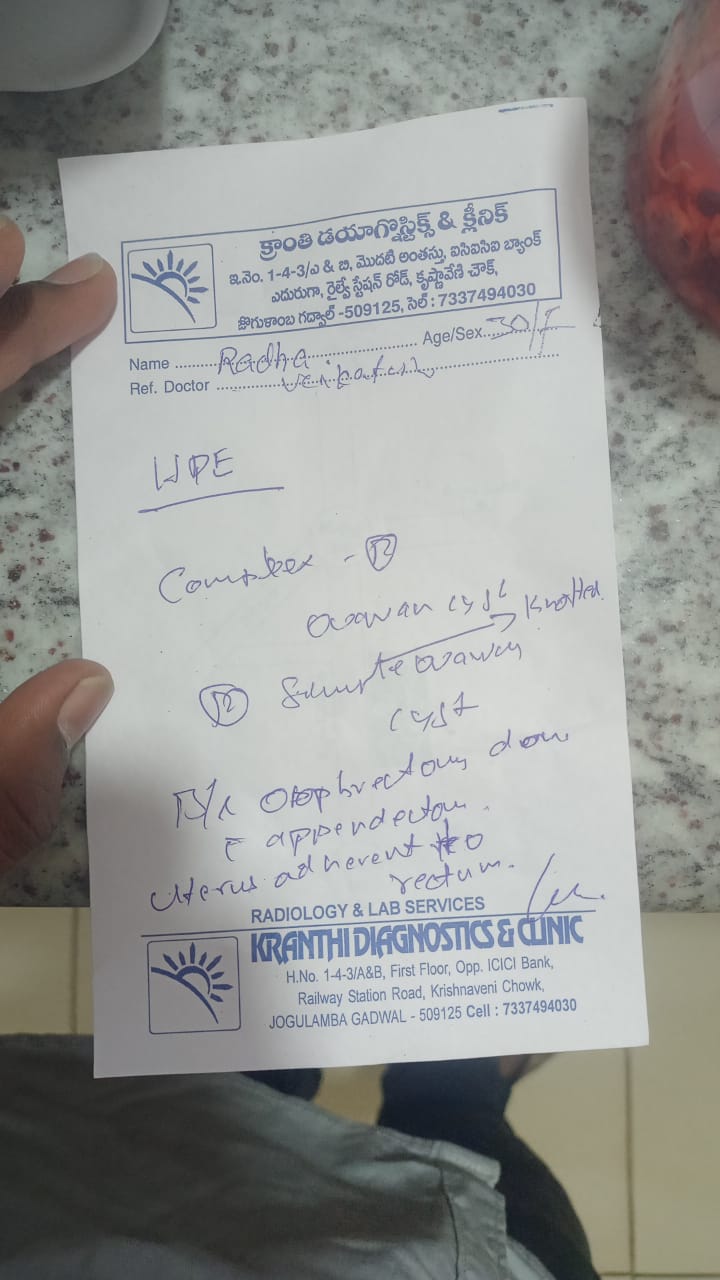 క్రాంతి డయాగ్నొస్టిక్స్ & క్లీనిక్
ఇ.నెం. 1-4-3/ఎ & బి, మొదటి అంతస్తు, ఐసిఐసిఐ బ్యాంక్
ఎదురుగా, రైల్వే స్టేషన్ రోడ్, కృష్ణావేణి చౌక్,
జోగుళాంబ గద్వాల్ -509125, సెల్ : 7337494030
Name Radha Age/Sex 30/F
Ref. Doctor
HPE
Complex -
ovarian cyst
Simple ovarian
cyst
B/L Oophrectomy done
appendectom
Uterus adherent to
rectum.
RADIOLOGY & LAB SERVICES
KRANTHI DIAGNOSTICS & CLINIC
H.No. 1-4-3/A&B, First Floor, Opp. ICICI Bank,
Railway Station Road, Krishnaveni Chowk,
JOGULAMBA GADWAL - 509125 Cell : 7337494030